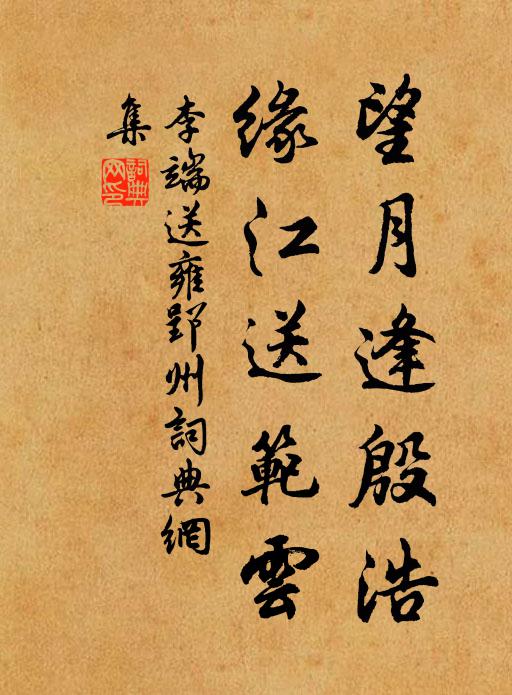 望月逢殷浩
緣江送範雲
李端送雍郢州詞典網
集
詞典
网印